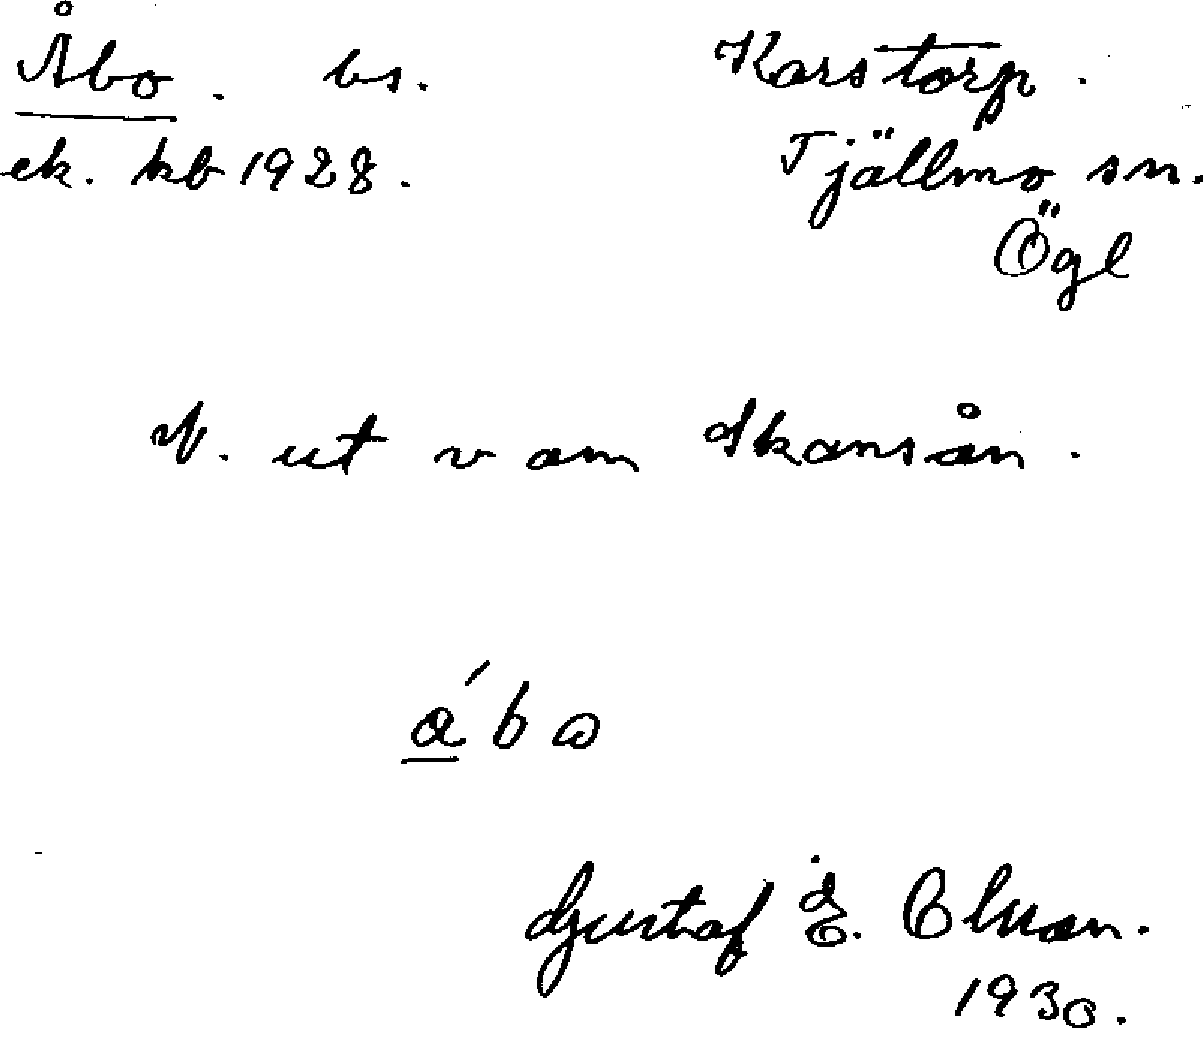 Åbo. bs. Karstorp.
ek. kb 1928. Tjällmo sn.
Ögl
N. ut v om Skansån.
a´ b o
Gustaf E.
1930.